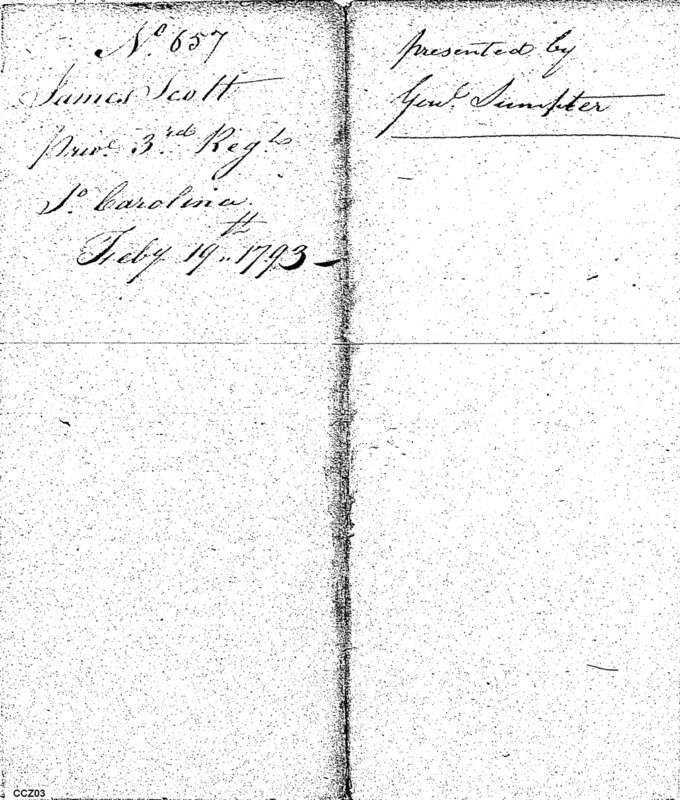 No 657
James Scott
Privt 3rd Regt
So Carolina.
Feby 19th 1793 –
presented by
Genl. Sumpter
CCZ03